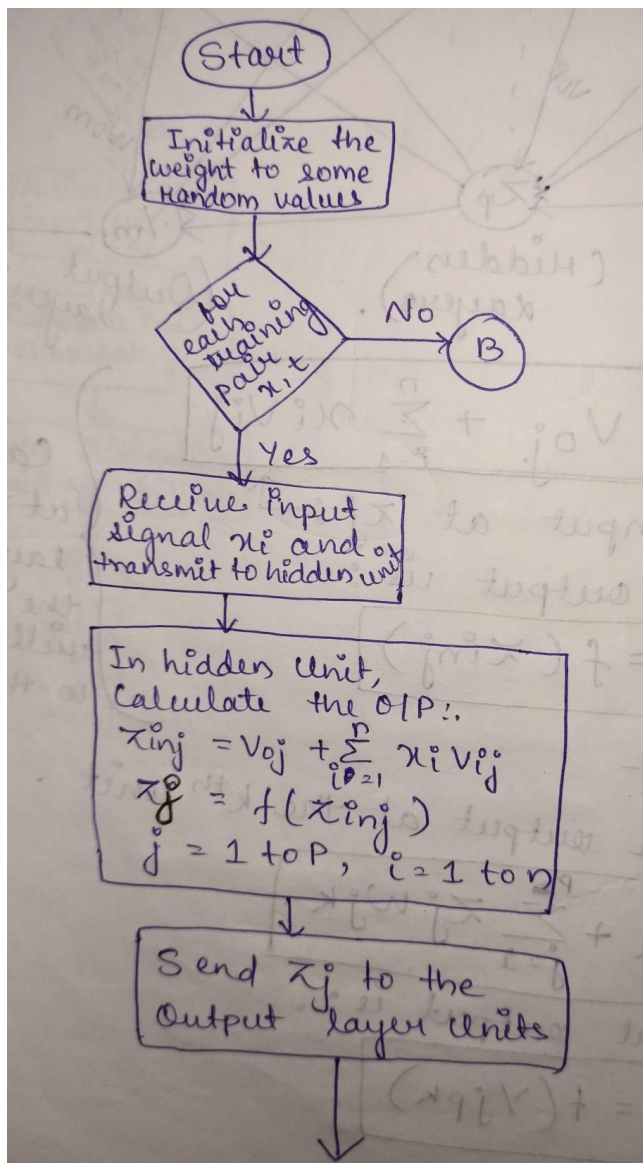 Start
Initialize the
weight to some
random values
for
each
training
pair
x, t
No
B
Yes
Receive input
signal xi and
transmit to hidden unit
In hidden unit,
Calculate the O/P:.
Zinj = Voj + Σ(i=1 to n) xi Vij
Zj = f(Zinj)
j = 1 to P, i = 1 to n
Send Zj to the
Output layer Units